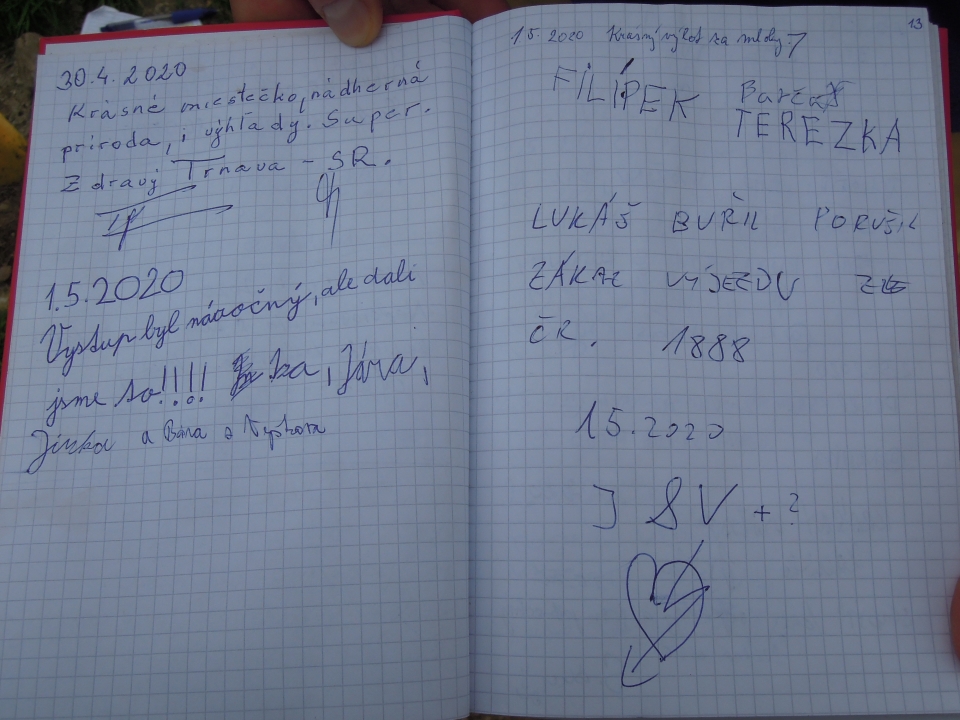 30.4.2020
Krásné miestečko, nádherná
príroda, i výhľady. Super.
Zdravý Trnava - SR.
1.5.2020
Výstup byl náročný, ale dali
jsme to!!!! ka, Jára,
Jirka a Bára a
13
1.5. 2020 Krásný výlet za mlhy
FILÍPEK
TEREZKA
LUKÁŠ BUŘIL PORUŠIL
ZÁKAZ VÝJEZDU ZE
ČR. 1888
1.5.2020
J SV + ?